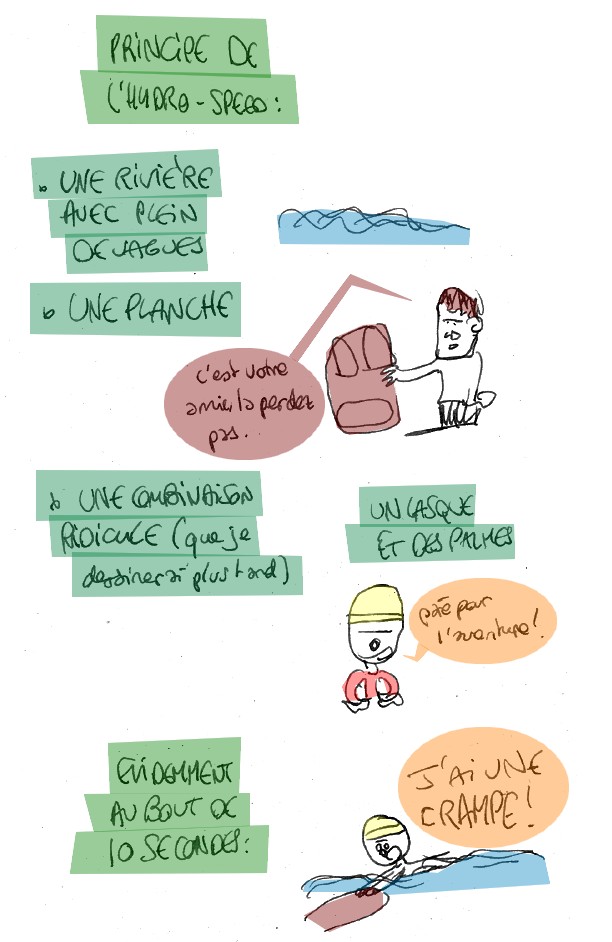 PRINCIPE DE
L'HYDRO-SPEED:
UNE RIVIÈRE
AVEC PLEIN
DE VAGUES
UNE PLANCHE
c'est votre
amie, la perdez
pas.
UNE COMBINAISON
RIDICULE (que je
dessinerai plus tard)
UN CASQUE
ET DES PALMES
paré pour
l'aventure!
EVIDEMMENT
AU BOUT DE
10 SECONDES:
J'AI UNE
CRAMPE!